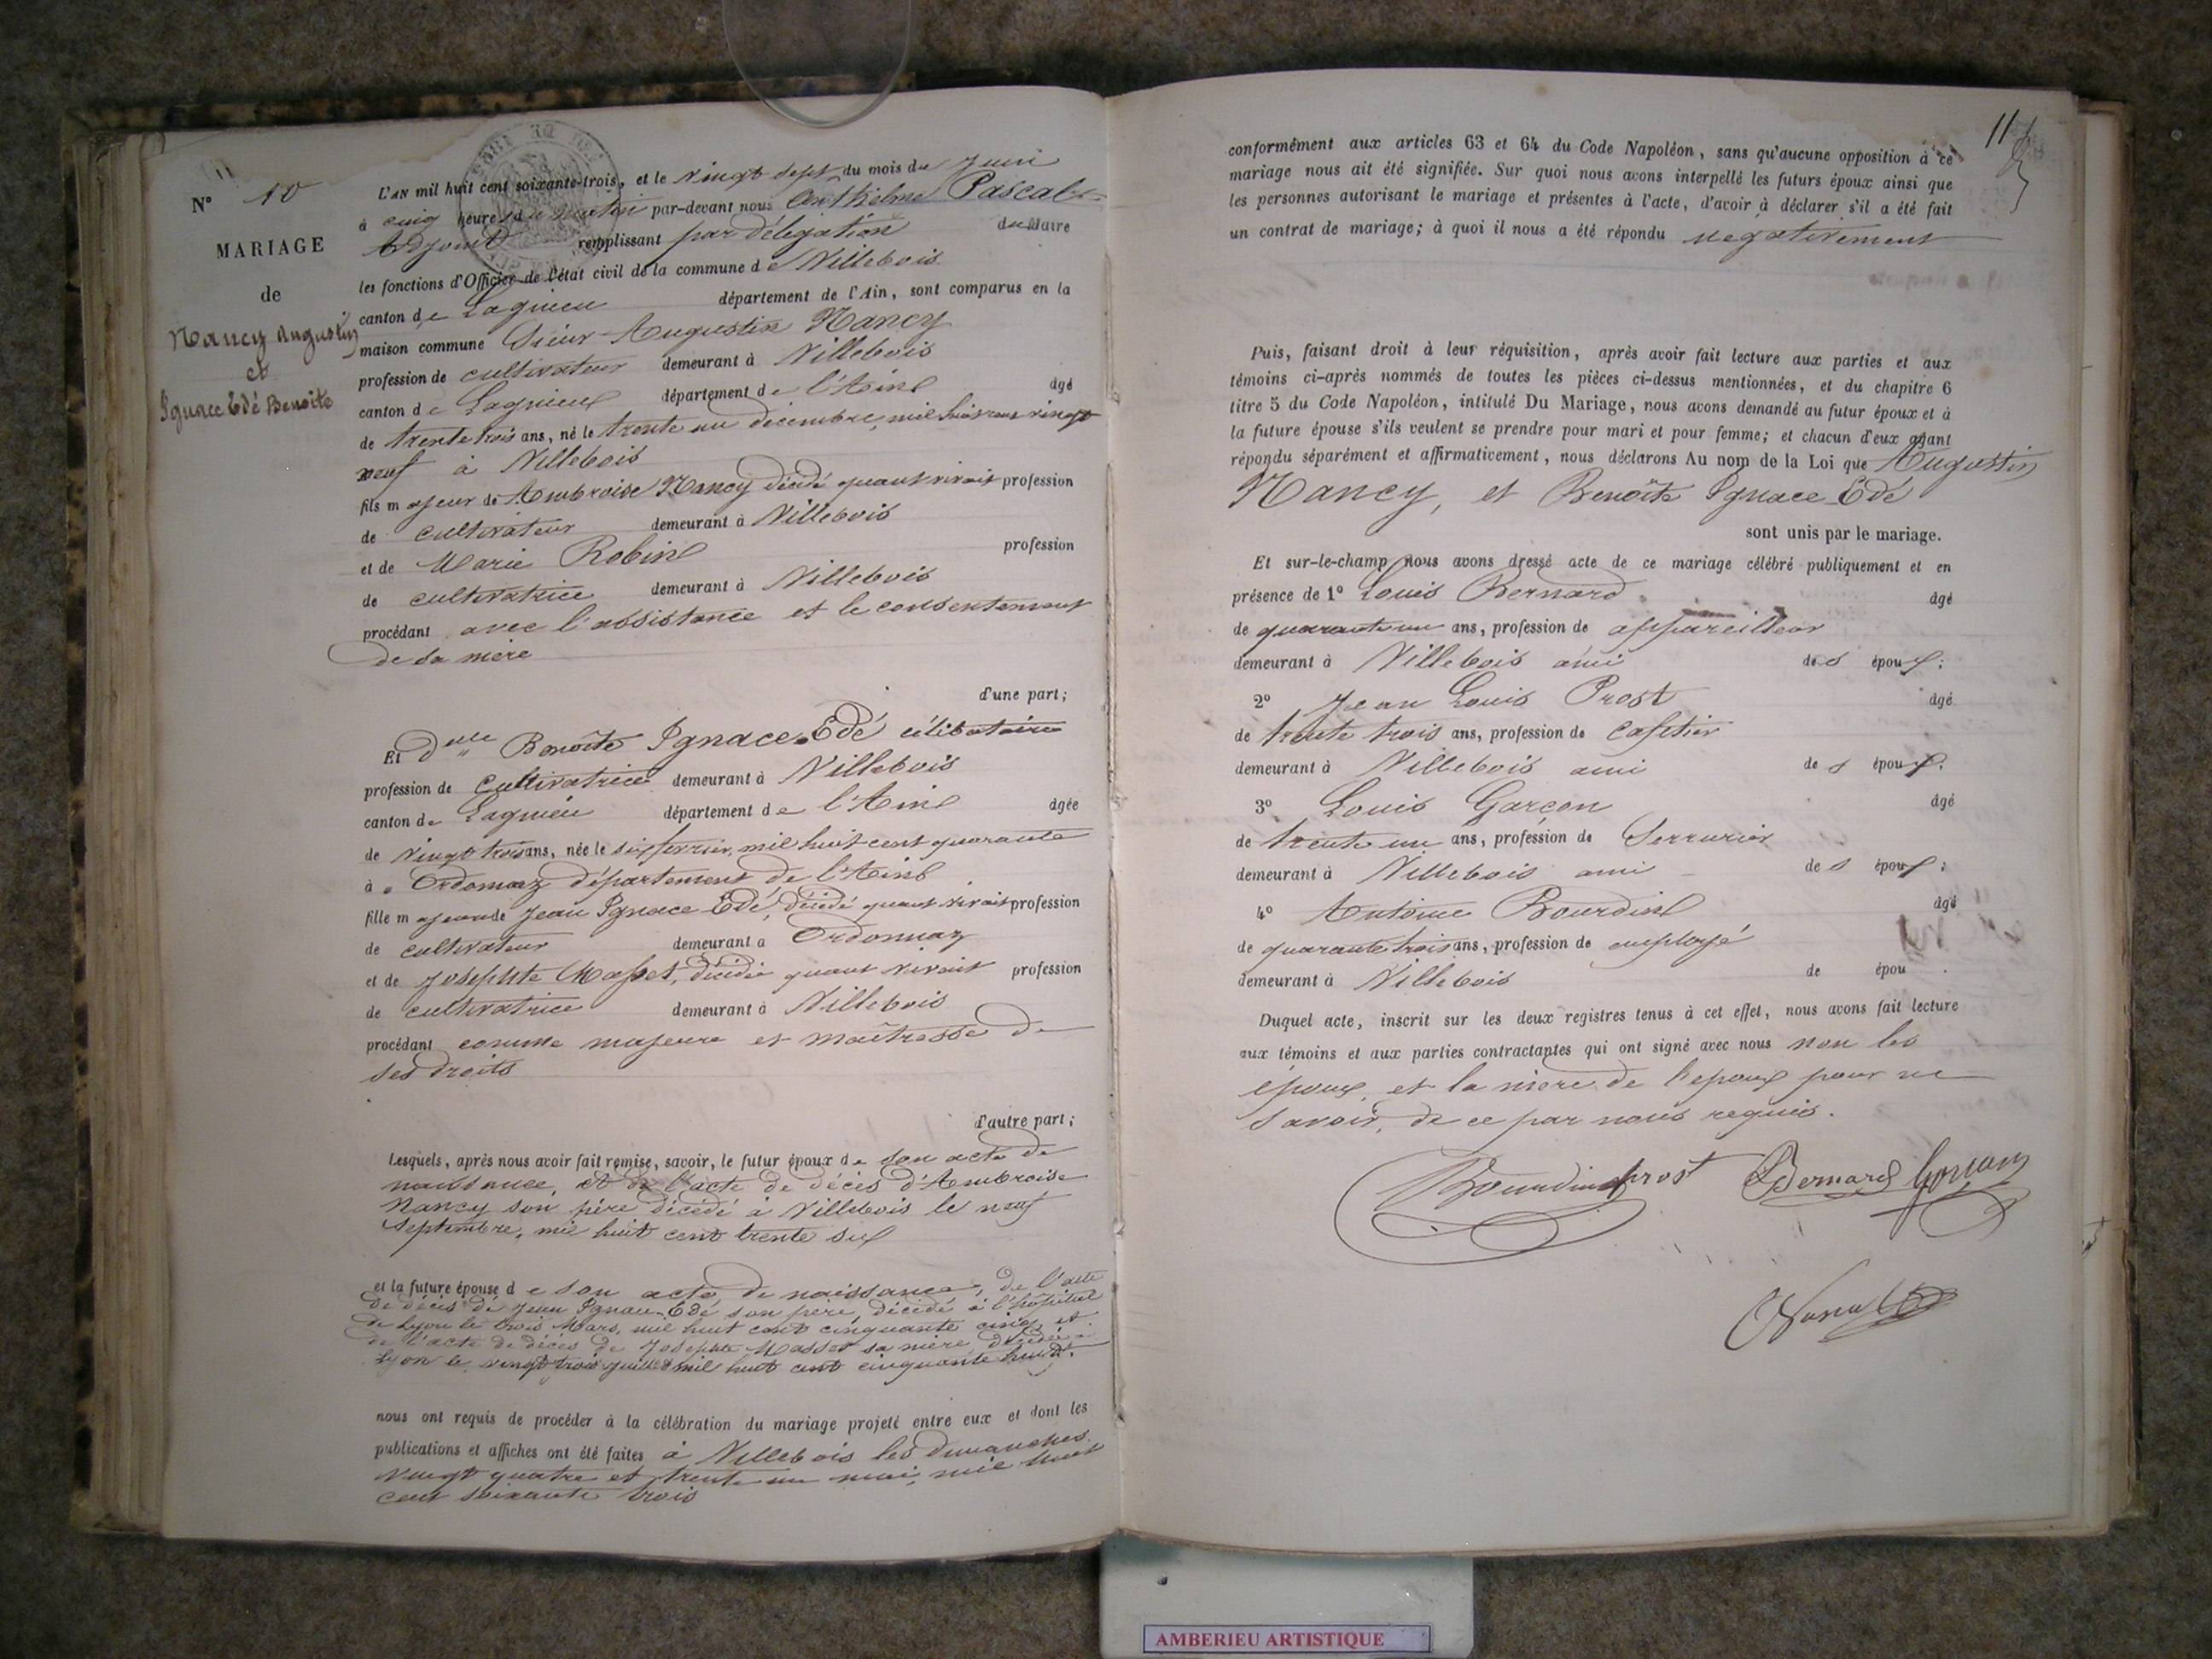 N° 10
MARIAGE
de
Nancy Augustin
et
Ignace Edé Benoite
L'AN mil huit cent soixante-trois, et le vingt sept du mois de Juin
à cinq heures du matin par-devant nous Anthelme Pascal
Adjoint remplissant par délégation du Maire
les fonctions d'Officier de l'état civil de la commune de Villebois
canton de Lagnieu département de l'Ain, sont comparus en la
maison commune Sieur Augustin Nancy
profession de cultivateur demeurant à Villebois
canton de Lagnieu département de l'Ain âgé
de trente trois ans, né le trente un décembre, mil huit cent vingt
neuf à Villebois
fils majeur de Ambroise Nancy décédé quant vivait profession
de cultivateur demeurant à Villebois
et de Marie Robin profession
de cultivatrice demeurant à Villebois
procédant avec l'assistance et le consentement
de sa mère
d'une part;
Et delle Benoîte Ignace Edé célibataire
profession de Cultivatrice demeurant à Villebois
canton de Lagnieu département de l'Ain âgée
de vingt trois ans, née le six février, mil huit cent quarante
à Ordonnaz département de l'Ain
fille majeure de Jean Ignace Edé, décédé quant vivait profession
de cultivateur demeurant à Ordonnaz
et de Josephte Masset, décédée quant vivait profession
de cultivatrice demeurant à Villebois
procédant comme majeure et maîtresse de
ses droits
d'autre part;
Lesquels, après nous avoir fait remise, savoir, le futur époux de son acte de
naissance, et de l'acte de décès d'Ambroise
Nancy son père décédé à Villebois le neuf
septembre, mil huit cent trente six
et la future épouse de son acte de naissance, de l'acte
de décès de Jean Ignace Edé son père, décédé à l'hôpital
de Lyon le trois Mars, mil huit cent cinquante cinq, et
de l'acte de décès de Josephte Masset sa mère, décédée à
Lyon le vingt trois juillet mil huit cent cinquante huit.
nous ont requis de procéder à la célébration du mariage projeté entre eux et dont les
publications et affiches ont été faites à Villebois les dimanches
vingt quatre et trente un mai, mil huit
cent soixante trois
11
conformément aux articles 63 et 64 du Code Napoléon, sans qu'aucune opposition à ce
mariage nous ait été signifiée. Sur quoi nous avons interpellé les futurs époux ainsi que
les personnes autorisant le mariage et présentes à l'acte, d'avoir à déclarer s'il a été fait
un contrat de mariage; à quoi il nous a été répondu négativement
Puis, faisant droit à leur réquisition, après avoir fait lecture aux parties et aux
témoins ci-après nommés de toutes les pièces ci-dessus mentionnées, et du chapitre 6
titre 5 du Code Napoléon, intitulé Du Mariage, nous avons demandé au futur époux et à
la future épouse s'ils veulent se prendre pour mari et pour femme; et chacun d'eux ayant
répondu séparément et affirmativement, nous déclarons Au nom de la Loi que Augustin
Nancy, et Benoîte Ignace Edé
sont unis par le mariage.
Et sur-le-champ nous avons dressé acte de ce mariage célébré publiquement et en
présence de 1° Louis Bernard âgé
de quarante un ans, profession de appareilleur
demeurant à Villebois ami des époux;
2° Jean Louis Prost âgé
de trente trois ans, profession de Cafetier
demeurant à Villebois ami des époux;
3° Louis Garçon âgé
de trente un ans, profession de Serrurier
demeurant à Villebois ami des époux;
4° Antoine Bourdin âgé
de quarante trois ans, profession de employé
demeurant à Villebois de épou .
Duquel acte, inscrit sur les deux registres tenus à cet effet, nous avons fait lecture
aux témoins et aux parties contractantes qui ont signé avec nous non les
époux, et la mère de l'époux pour ne
savoir, de ce par nous requis.
Bourdin prost Bernard
Pascal
AMBERIEU ARTISTIQUE